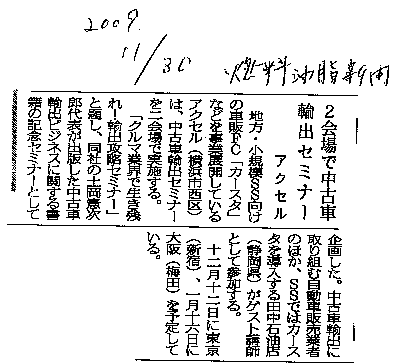 2009
11/30 燃料油脂新聞
2会場で中古車
輸出セミナー
アクセル
地方・小規模SS向け
の車販FC「カースタ」
などを事業展開している
アクセル（横浜市西区）
は、中古車輸出セミナー
を二会場で実施する。
「クルマ業界で生き残
れ！輸出攻略セミナー」
と題し、同社の土岡憲次
郎代表が出版した中古車
輸出ビジネスに関する書
籍の記念セミナーとして
企画した。中古車輸出に
取り組む自動車販売業者
のほか、SSではカース
タを導入する田中石油店
（静岡県）がゲスト講師
として参加する。
十二月十二日に東京
（新宿）、一月十六日に
大阪（梅田）を予定して
いる。